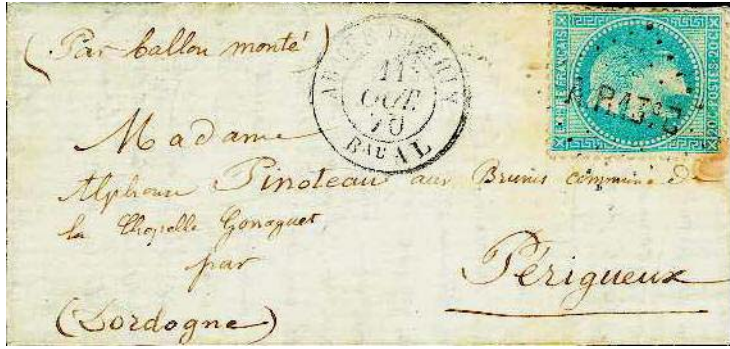 (Par ballon monté)
ARMÉE DU RHIN
11
OCT.
70
BAU AL
EMPIRE FRANÇAIS
20 C POSTES 20 C
Madame
Alphonse Pinoteau aux Brunis commune de
la Chapelle Gonaguet
par
Périgueux
(Dordogne)